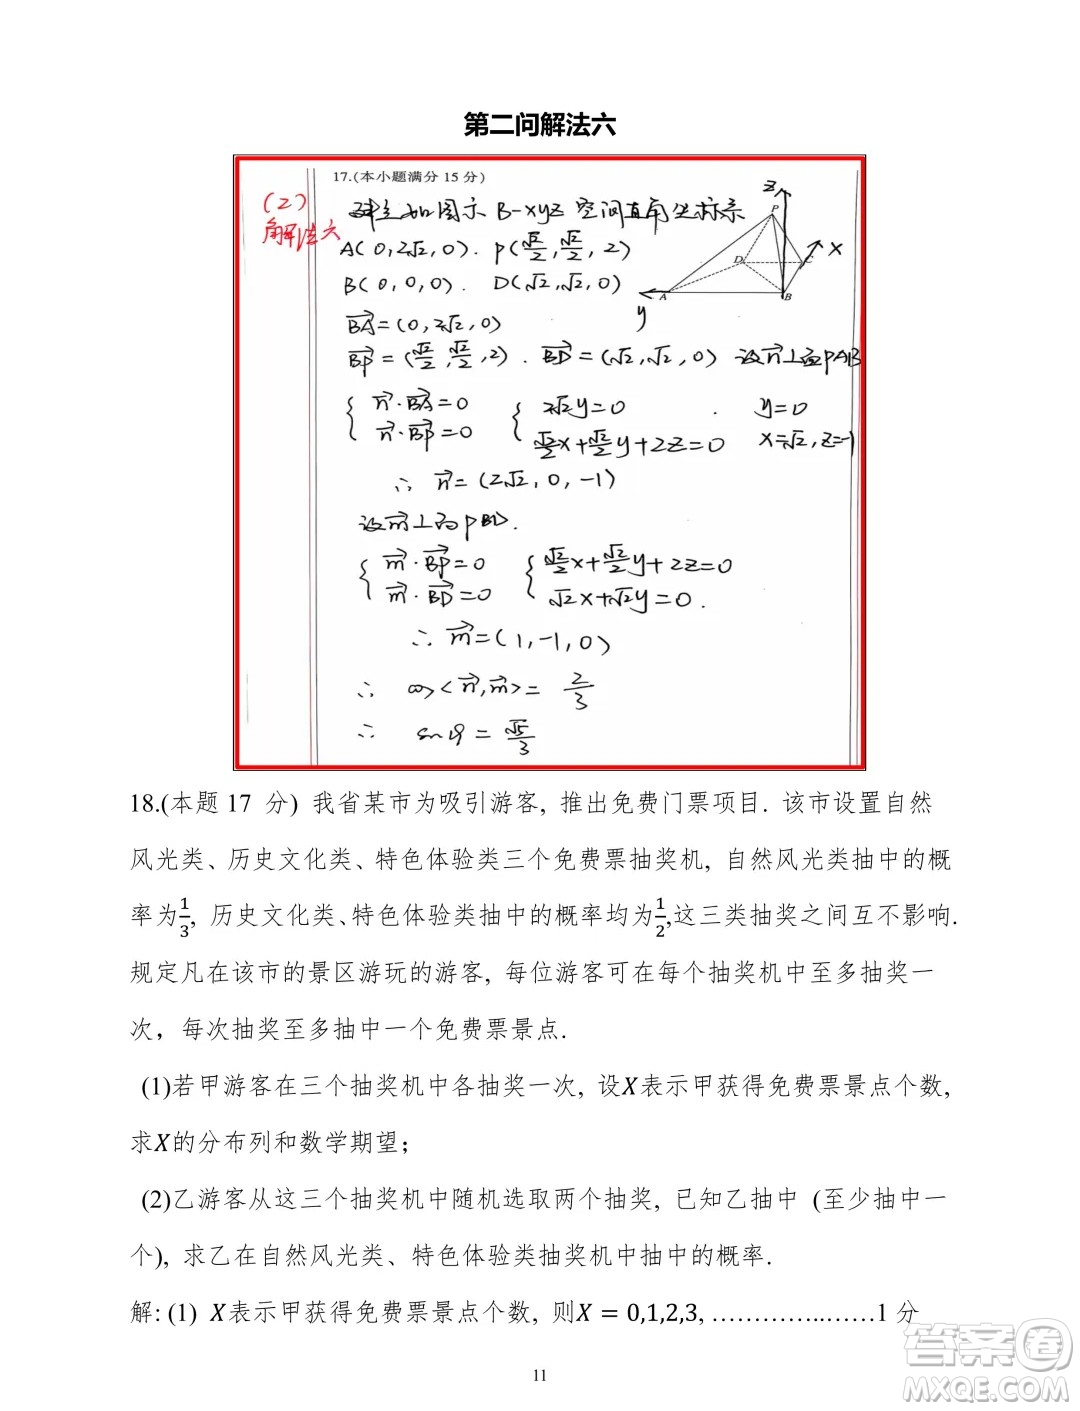 第二问解法六
17.(本小题满分 15 分)
(2)
解法六
建立如图示 B-xyz 空间直角坐标系
A(0,2√2,0). P(√2/2,√2/2,2)
B(0,0,0). D(√2,√2,0)
z
P
x
D
C
A
B
y
BA=(0,2√2,0)
BP=(√2/2,√2/2,2). BD=(√2,√2,0) 设n⊥面PAB
{ n·BA=0 { 2√2y=0 . y=0
n·BP=0 √2/2x+√2/2y+2z=0
∴ n=(2√2,0,-1)
设m⊥面PBD.
{ m·BP=0 { √2/2x+√2/2y+2z=0
m·BD=0 √2x+√2y=0.
∴ m=(1,-1,0)
∴ cos<n,m>=2/3
∴ sinθ=√5/3
18.(本题 17 分) 我省某市为吸引游客, 推出免费门票项目. 该市设置自然
风光类、历史文化类、特色体验类三个免费票抽奖机, 自然风光类抽中的概
率为1/3, 历史文化类、特色体验类抽中的概率均为1/2,这三类抽奖之间互不影响.
规定凡在该市的景区游玩的游客, 每位游客可在每个抽奖机中至多抽奖一
次，每次抽奖至多抽中一个免费票景点.
(1)若甲游客在三个抽奖机中各抽奖一次, 设X表示甲获得免费票景点个数,
求X的分布列和数学期望；
(2)乙游客从这三个抽奖机中随机选取两个抽奖, 已知乙抽中 (至少抽中一
个), 求乙在自然风光类、特色体验类抽奖机中抽中的概率.
解: (1) X表示甲获得免费票景点个数, 则X = 0,1,2,3, …………..……1 分
11
答案圈
MXQE.COM